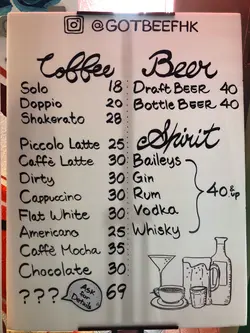 @GOTBEEFHK
Coffee
Solo 18
Doppio 20
Shakerato 28
Piccolo Latte 25
Caffè Latte 30
Dirty 30
Cappuccino 30
Flat White 30
Americano 25
Caffè Mocha 35
Chocolate 30
??? Ask For Details 69
Beer
Draft BEER 40
Bottle BEER 40
Spirit
Baileys
Gin
Rum
Vodka
Whisky
40 & up